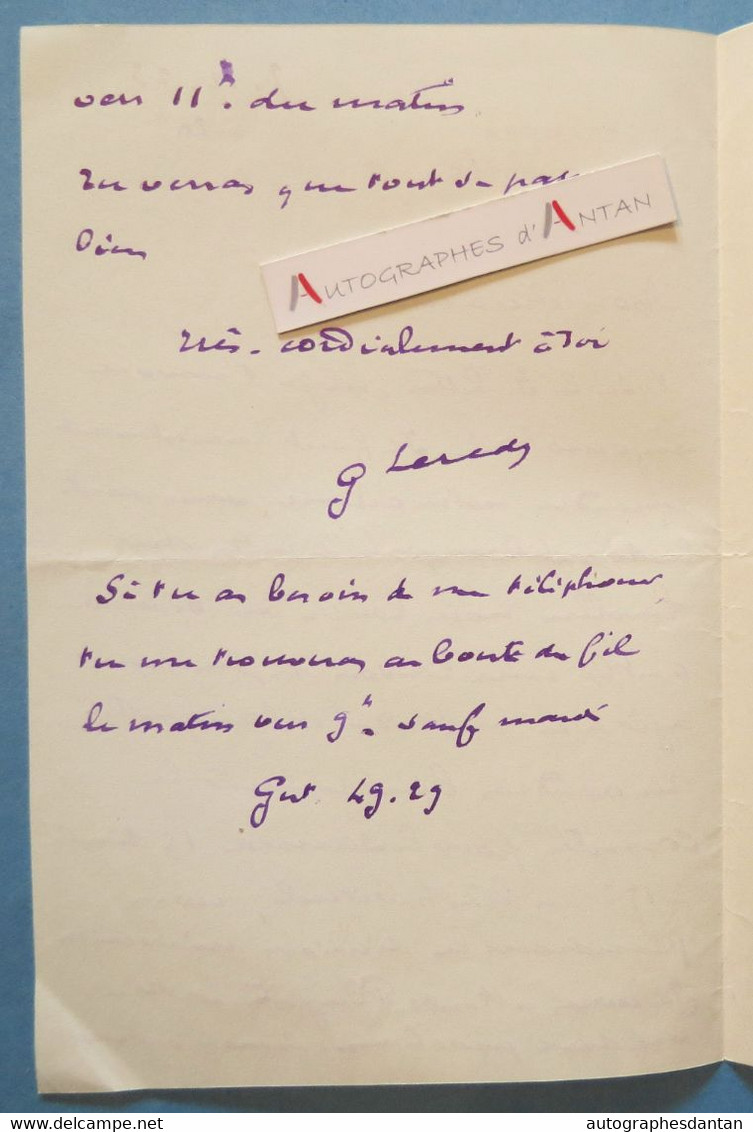 vers 11h. du matin
Tu verras que tout se pas
bien
AUTOGRAPHES d'ANTAN
Très-cordialement à toi
G
Si tu as besoin de me téléphoner
tu me trouveras au bout du fil
le matin vers 9h. sauf mardi
Gut. 49.29
delcampe.net
autographesdantan